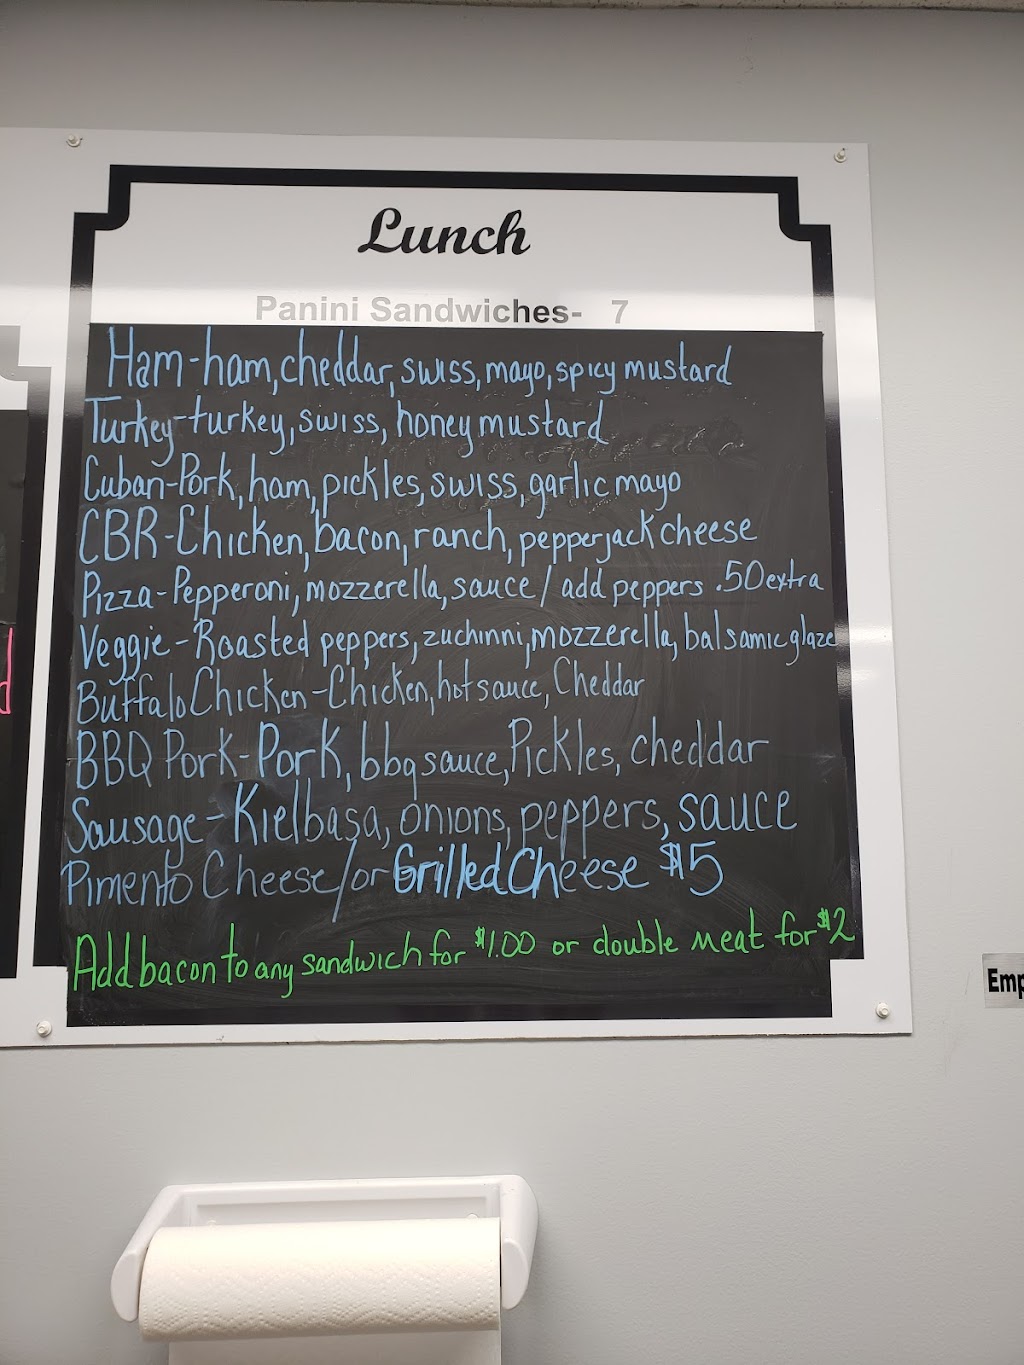 Lunch
Panini Sandwiches- 7
Ham-ham, cheddar, swiss, mayo, spicy mustard
Turkey-turkey, swiss, honey mustard
Cuban-Pork, ham, pickles, swiss, garlic mayo
CBR-Chicken, bacon, ranch, pepperjack cheese
Pizza-Pepperoni, mozzerella, sauce / add peppers .50 extra
Veggie-Roasted peppers, zuchinni, mozzerella, balsamic glaze
Buffalo Chicken-Chicken, hot sauce, Cheddar
BBQ Pork-Pork, bbq sauce, Pickles, cheddar
Sausage-Kielbasa, onions, peppers, sauce
Pimento Cheese/or Grilled Cheese $5
Add bacon to any sandwich for $1.00 or double meat for $2
Emp